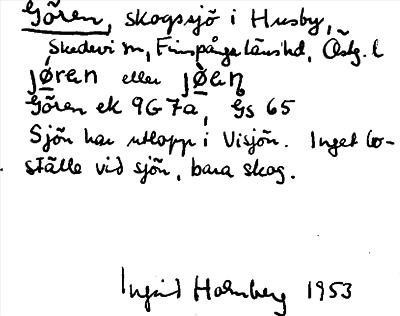 Gören, skogssjö i Husby,
Skedevi sn, Finspånga länshd, Östg. l
jø̱ren eller jø̱eɳ
Gören ek 9G7a, Gs 65
Sjön har utlopp i Visjön. Inget bo-
ställe vid sjön, bara skog.
Ingrid Holmberg 1953